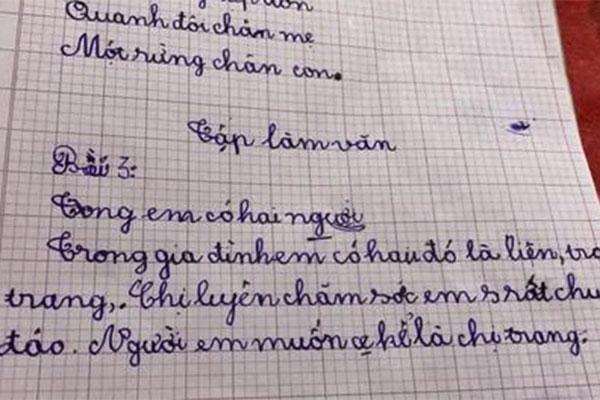 Quanh đôi chân mẹ
Một rừng chân con.
Tập làm văn
Bài 3:
Tong em có hai người
Trong gia đình em có hau đó là liên, tra
trang,. Chị luyên chăm sóc em s rất chu
táo. Người em muốn kể là chị trang.